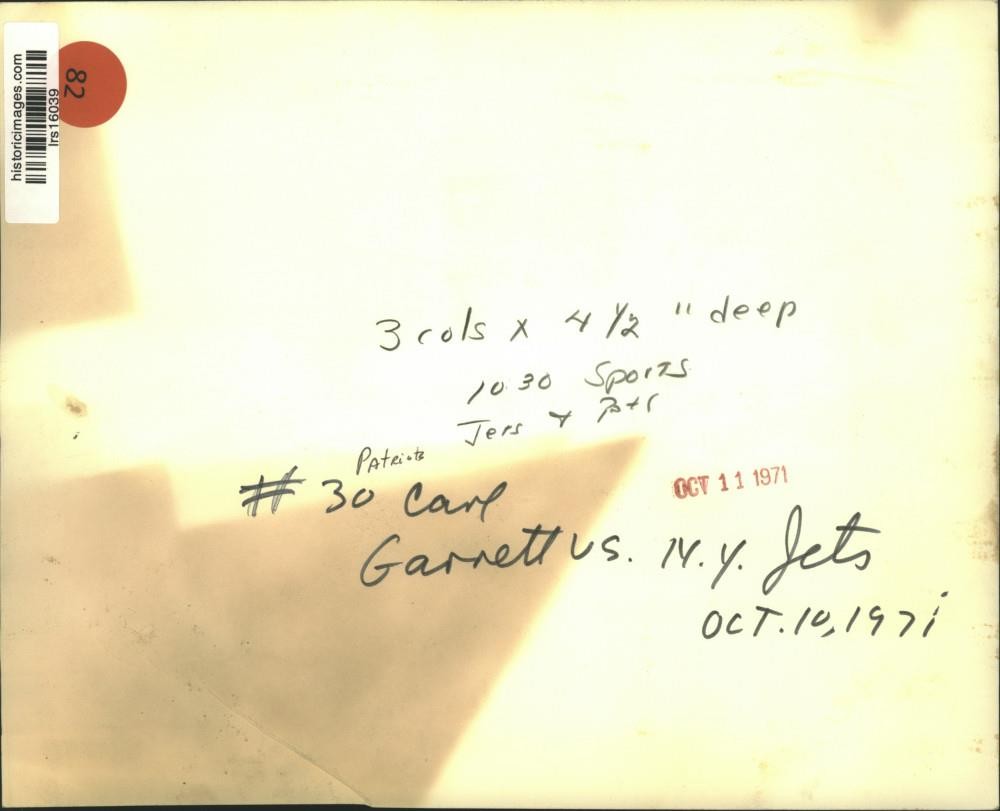 historicimages.com
lrs16039
82
3 cols x 4 1/2 " deep
10 30 Sports
Jers
Patriots
# 30 Carl
Garrett vs. N.Y. Jets
OCT 11 1971
OCT. 10, 1971